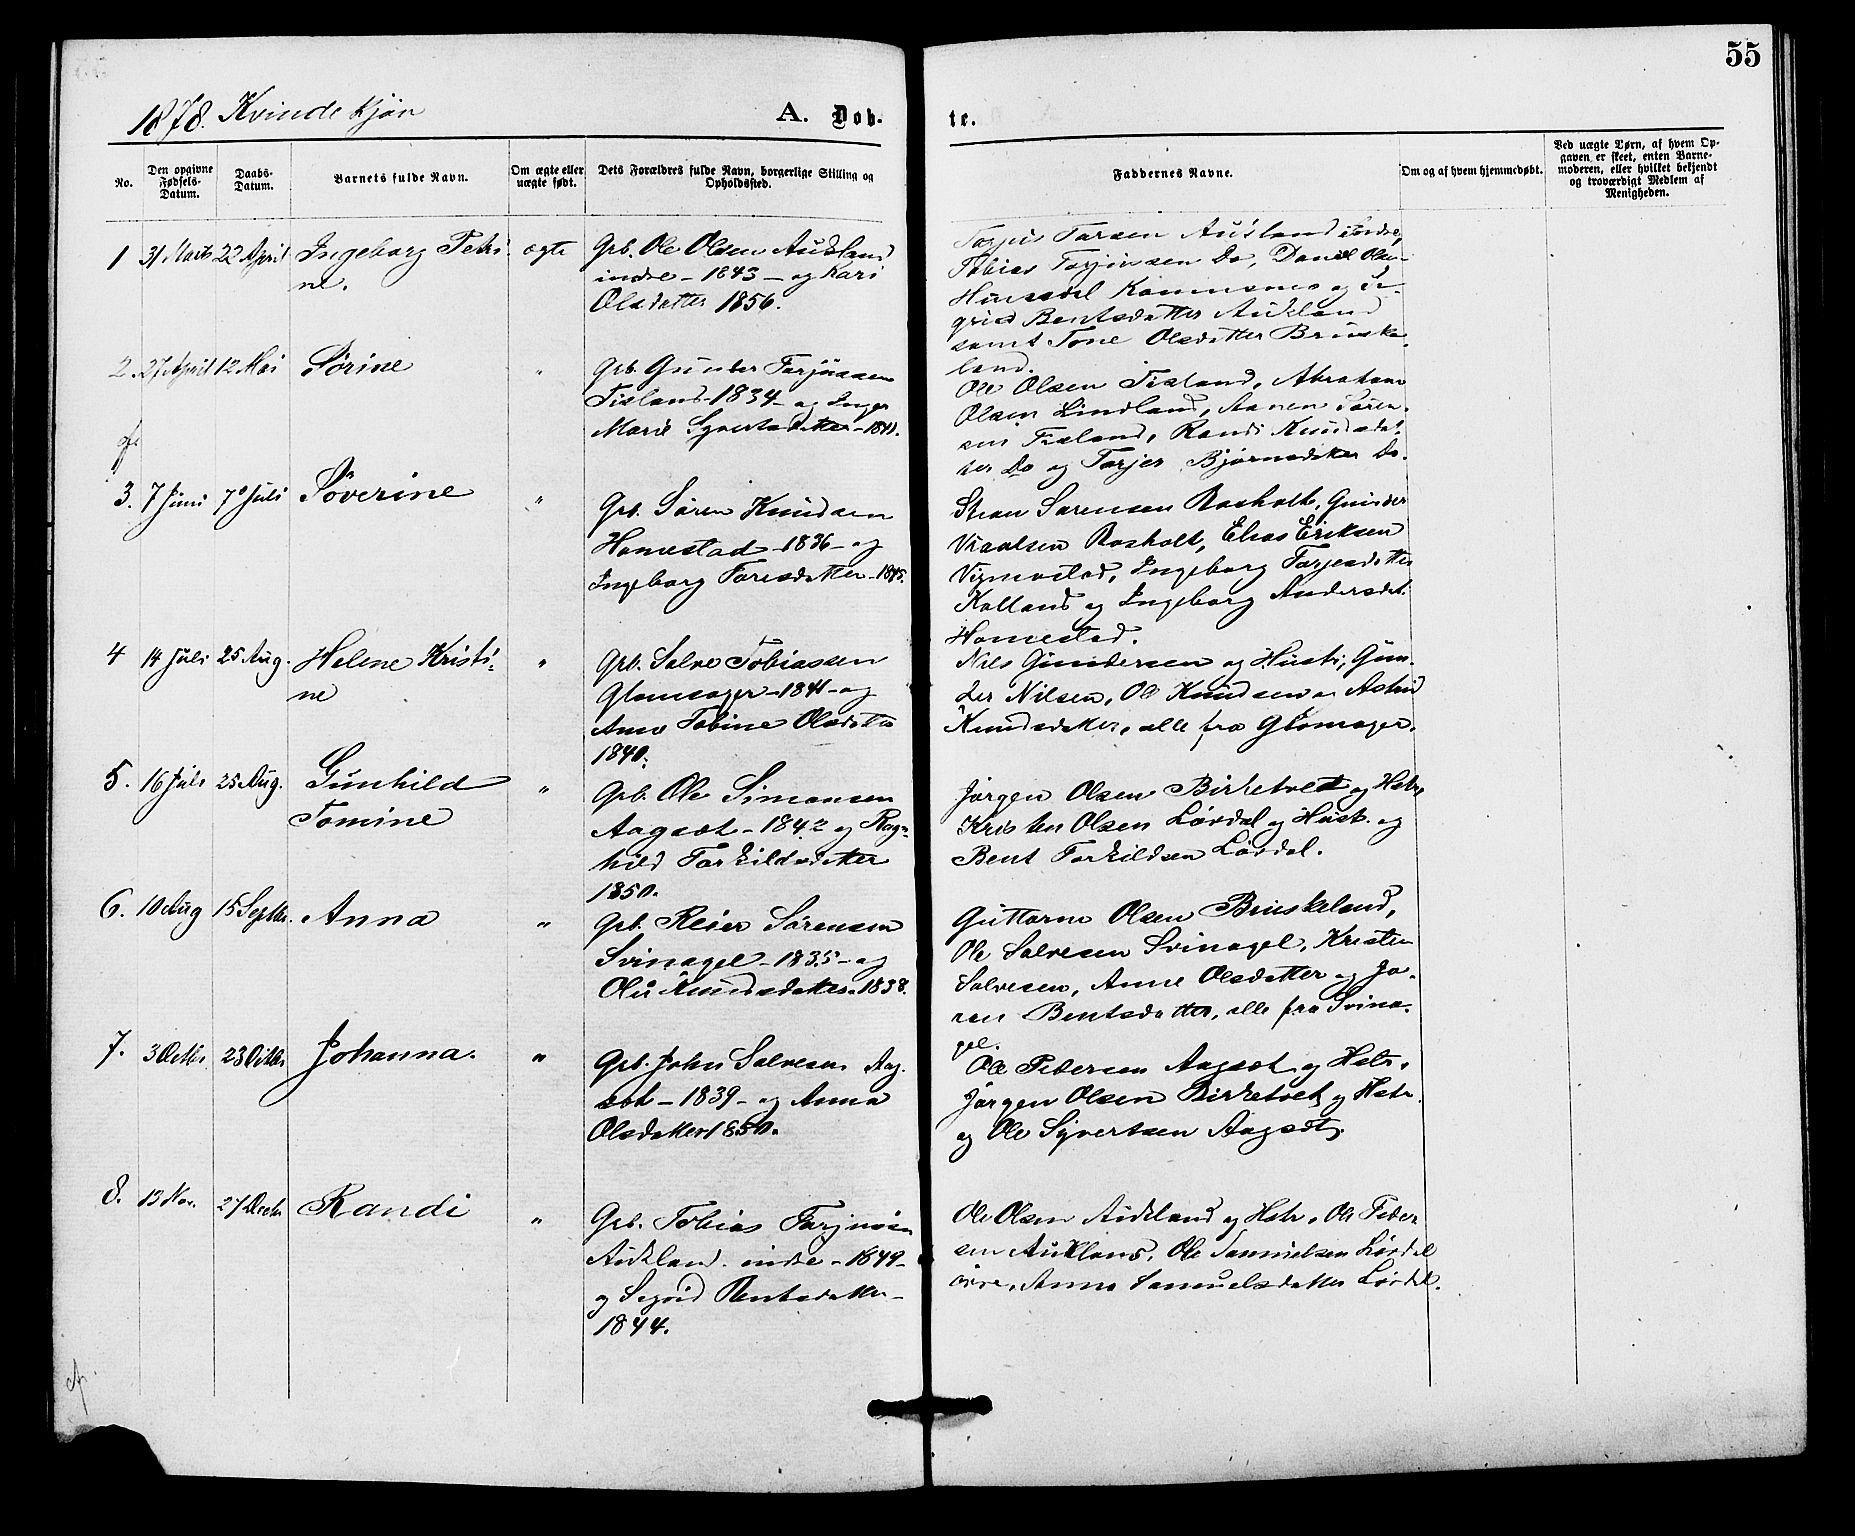 55
1878. Kvindekjøn
A. Døb-
te.
No.
Den opgivne Fødsels-Datum.
Daabs-Datum.
Barnets fulde Navn.
Om ægte eller uægte født.
Dets Forældres fulde Navn, borgerlige Stilling og Opholdssted.
Faddernes Navne.
Om og af hvem hjemmedøbt.
Ved uægte Børn, af hvem Op-
gaven er skeet, enten Barne-
moderen, eller hvilket bekjendt
og troværdigt Medlem af
Menigheden.
1 31 Marts 22 April Ingeborg Petri
ne.
ægte
Grb. Ole Olsen Aukland
indre - 1843 - og Kari
Olsdatter 1856.
Aukland indre,
Tobias Torjussen Do, Daniel Olsen
og Si-
grid Bentsdatter Aukland
samt Tone Olsdatter Bruske-
land.
2. 27 April 12 Mai Sørine
"
Grb. Gunder Torjussen
Tisland - 1834 - og Inger
Marie Syvertsdatter - 1841.
Ole Olsen Tisland, Abraham
Olsen Lindland, Aanen Søren-
sen Tisland, Randi Knudsdat-
ter Do og Torjer Bjørnsdatter Do.
3. 7 Juni 7 Juli Søverine
"
Grb. Søren Knudsen
Homestad - 1836 - og
Ingeborg Toresdatter - 1845.
Stian Sørensen Rosholt, Gunder
Rosholt, Elias Eriksen
Vigmostad, Ingeborg Torjesdatter
Kolland og Ingeborg Andersdat.
Homestad.
4 14 Juli 25 Aug. Helene Kristi-
ne
"
Grb. Salve Tobiassen
Glomsager - 1841 - og
Anne Tobine Olsdatter
1840.
Nils Gundersen og Hustr, Gun-
der Nilsen, Ole Knudsen og Astrid
Knudsdatter, alle fra Glomsager.
5. 16 Juli 25 Aug. Gunhild
Tomine
"
Grb. Ole Simonsen
Aagset - 1842 og Ragn-
hild Torkildsdatter
1850.
Jørgen Olsen Birketvet og Hstr
Kristen Olsen Lövdal og Hustr. og
Bent Torkildsen Lövdal.
6. 10 Aug 15 Septbr. Anna
"
Grb. Reier Sørensen
Svinagel - 1835 - og
Olu Knudsdatter - 1838.
Guttorm Olsen Bruskeland,
Ole Salvesen Svinagel, Kristen
Salvesen, Anne Olsdatter og Jo-
ren Bentsdatter, alle fra Svina-
gel.
7. 3 Octbr 28 Octbr Johanna.
"
Grb. John Salvesen Aag-
set - 1839 - og Anna
Olsdatter 1850.
Ole Pedersen Aagset og Hstr.
Jørgen Olsen Birketvet og Hstr.
og Ole Syvertsen Aagset.
8. 13 Nov. 27 Decbr Randi
"
Grb. Tobias Torjussen
Aukland indre - 1849 -
og Sigrid Bentsdatter -
1844.
Ole Olsen Aukland og Hstr, Ole Peder
sen Aukland, Ole Samuelsen Lövdal
øvre, Anna Samuelsdatter Lövdal.